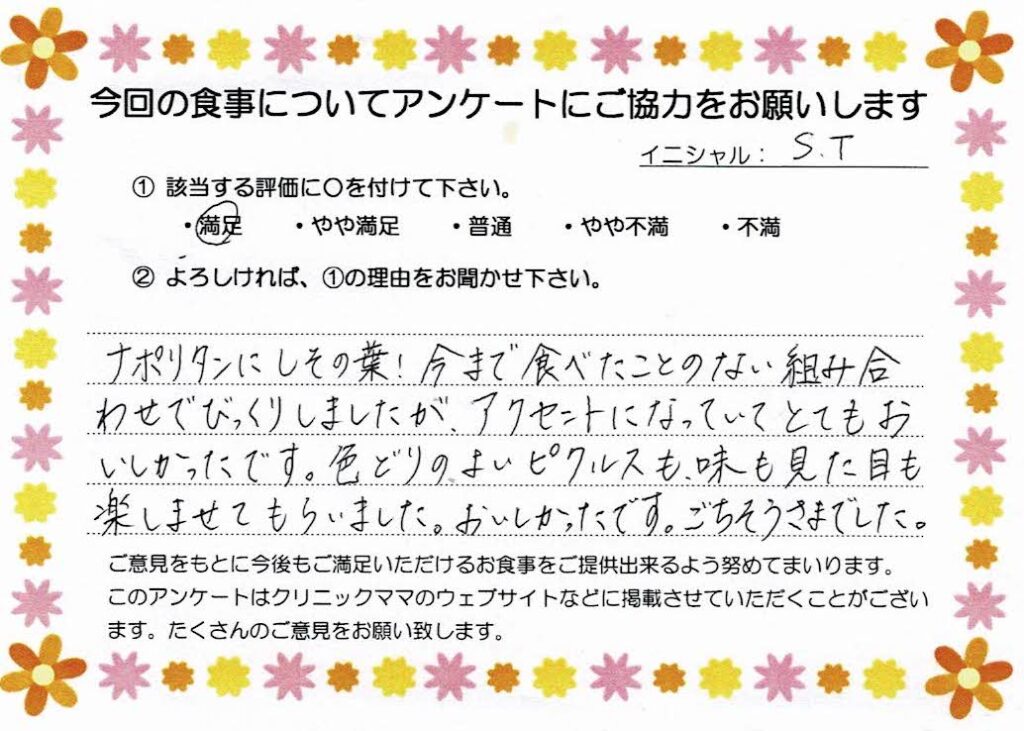 今回の食事についてアンケートにご協力をお願いします
イニシャル： S.T
① 該当する評価に〇を付けて下さい。
・満足 ・やや満足 ・普通 ・やや不満 ・不満
② よろしければ、①の理由をお聞かせ下さい。
ナポリタンにしその葉！今まで食べたことのない組み合
わせでびっくりしましたが、アクセントになっていてとてもお
いしかったです。色どりのよいピクルスも、味も見た目も
楽しませてもらいました。おいしかったです。ごちそうさまでした。
ご意見をもとに今後もご満足いただけるお食事をご提供出来るよう努めてまいります。
このアンケートはクリニックママのウェブサイトなどに掲載させていただくことがござい
ます。たくさんのご意見をお願い致します。